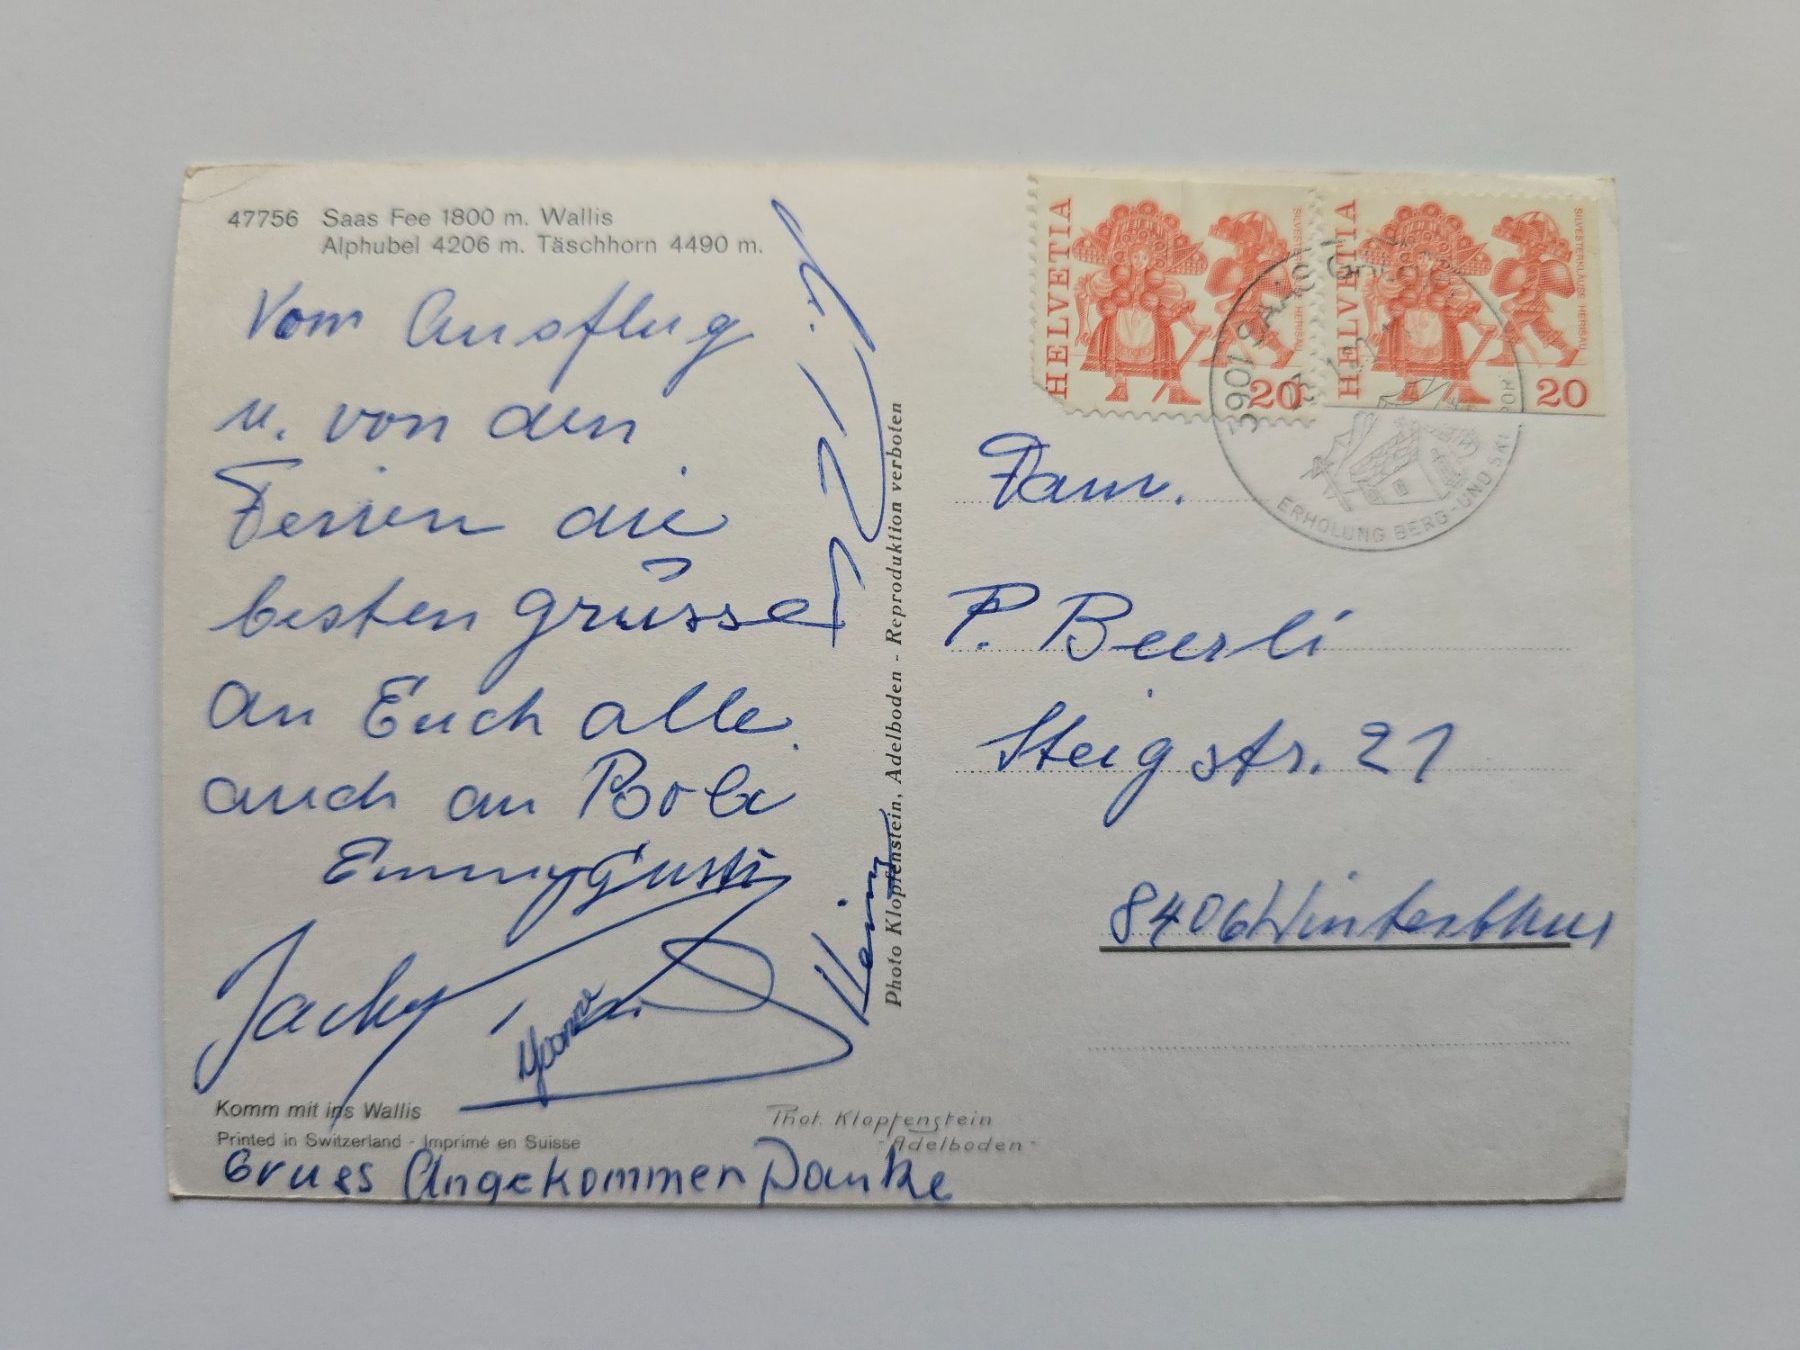 47756 Saas Fee 1800 m. Wallis
Alphubel 4206 m. Täschhorn 4490 m.
Vom Ausflug
u. von den
Ferien die
besten grüsse
an Euch alle
auch an Robi
Emmy Gusti
Jacky
Yvonne
Heinz
Komm mit ins Wallis
Printed in Switzerland - Imprimé en Suisse
Grues Angekommen Danke
Phot. Klopfenstein
"Adelboden"
Photo Klopfenstein, Adelboden - Reproduktion verboten
HELVETIA
SILVESTERKLÄUSE HERISAU
20
HELVETIA
SILVESTERKLÄUSE HERISAU
20
3901 SAAS
ERHOLUNG BERG-UND SKI
Fam.
P. Beerli
Steigstr. 21
8406 Winterthur